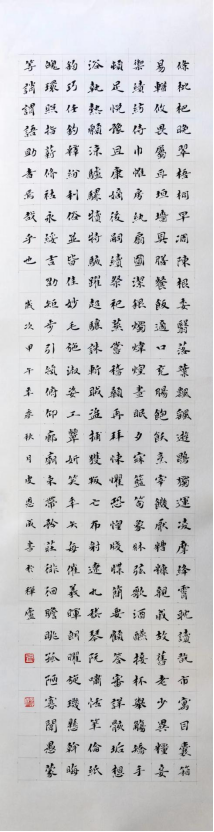 條枇杷晚翠梧桐早凋陳根委翳落葉飄颻遊鵾獨運凌摩絳霄耽讀翫市寓目囊箱
易輶攸畏屬耳垣牆具膳飡飯適口充腸飽飫烹宰飢厭糟糠親戚故舊老少異糧妾
御績紡侍巾帷房紈扇圓潔銀燭煒煌晝眠夕寐藍筍象牀弦歌酒讌接杯舉觴矯手
頓足悅豫且康嫡後嗣續祭祀蒸嘗稽顙再拜悚懼恐惶牋牒簡要顧答審詳骸垢想
浴執熱願涼驢騾犢特駭躍超驤誅斬賊盜捕獲叛亡布射遼丸嵇琴阮嘯恬筆倫紙
鈞巧任釣釋紛利俗並皆佳妙毛施淑姿工顰妍笑年矢每催曦暉朗曜璇璣懸斡晦
魄環照指薪修祜永綏吉劭矩步引領俯仰廊廟束帶矜莊徘徊瞻眺孤陋寡聞愚蒙
等誚謂語助者焉哉乎也 歲次甲午年仲秋月 恩成書於禪廬